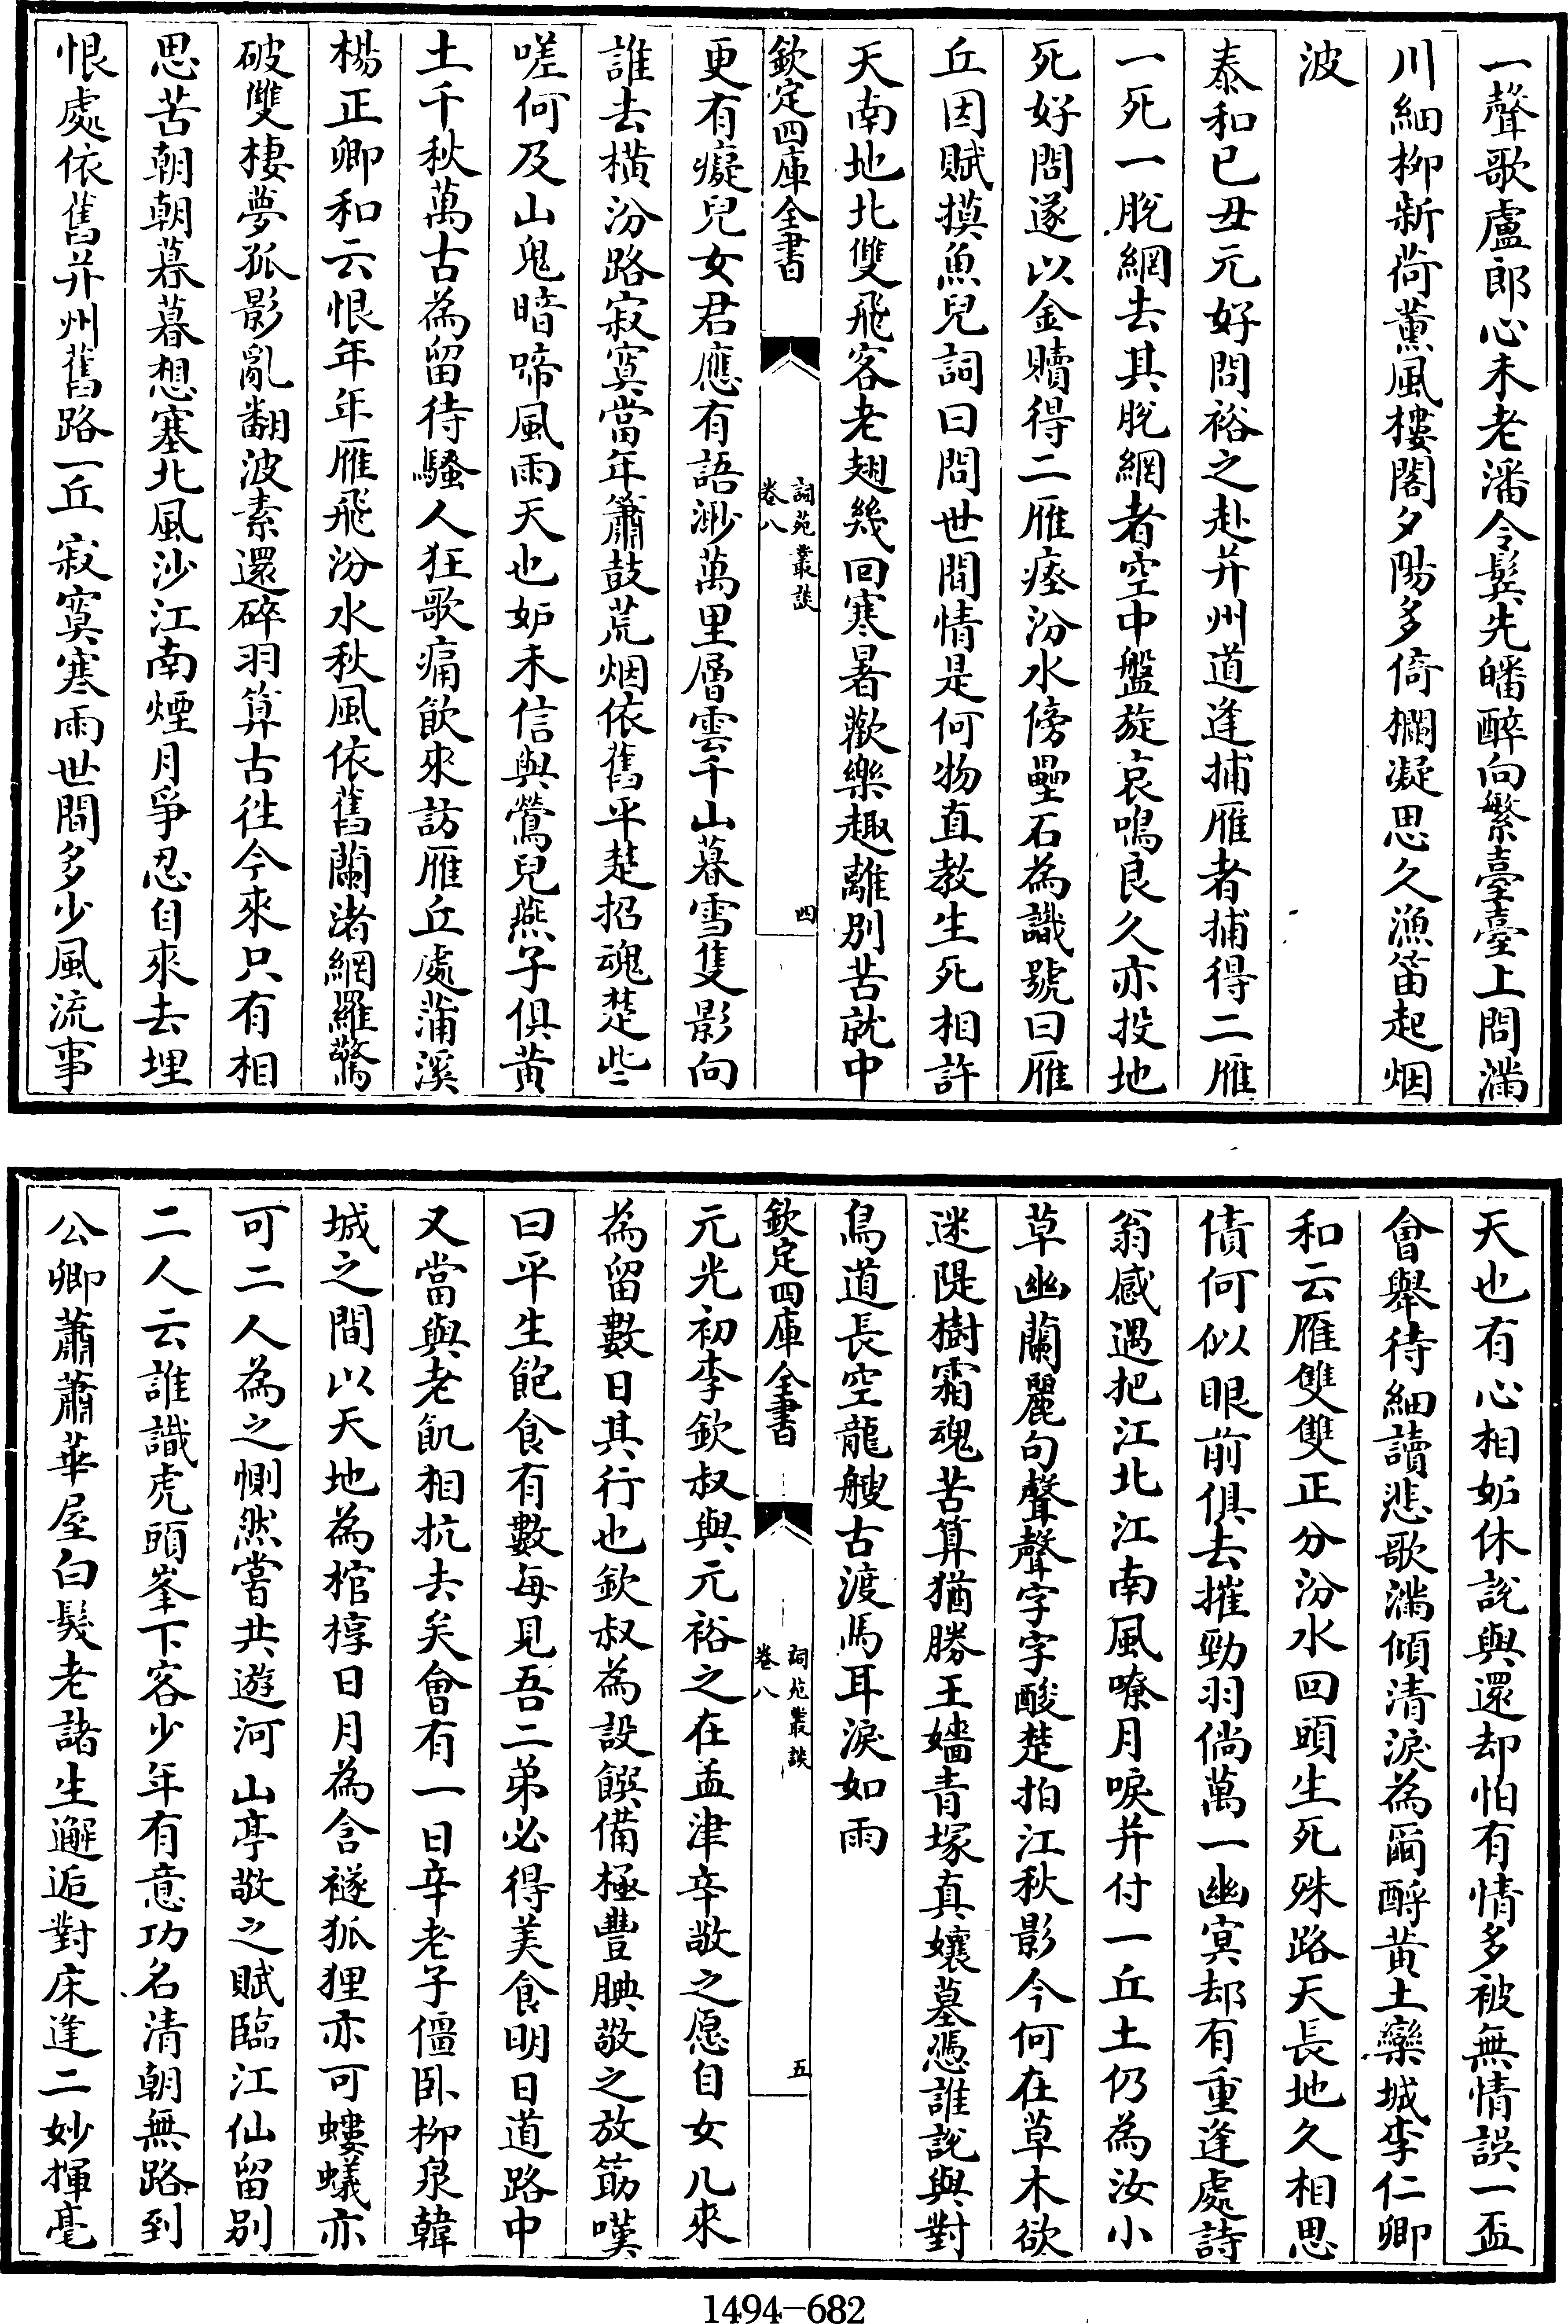 一聲歌盧郎心未老潘令鬂先皤醉向繁臺臺上問滿
川細柳新荷薰風樓閣夕陽多倚欄凝思久漁笛起烟
波
泰和已丑元好問裕之赴并州道逢捕雁者捕得二雁
一死一脫網去其脫網者空中盤旋哀鳴良久亦投地
死好問遂以金贖得二雁瘞汾水傍壘石為識號曰雁
丘因賦摸魚兒詞曰問世間情是何物直教生死相許
天南地北雙飛客老翅幾回寒暑歡樂趣離別苦就中
欽定四庫全書
詞苑叢談
卷八
四
更有癡兒女君應有語渺萬里層雲千山暮雪隻影向
誰去橫汾路寂寞當年簫鼓荒烟依舊平楚招魂楚些
嗟何及山鬼暗啼風雨天也妒未信與鶯兒燕子俱黃
土千秋萬古為留待騷人狂歌痛飲來訪雁丘處蒲溪
楊正卿和云恨年年雁飛汾水秋風依舊蘭渚網羅驚
破雙棲夢孤影亂翻波素還碎羽算古往今來只有相
思苦朝朝暮暮想塞北風沙江南煙月爭忍自來去埋
恨處依舊并州舊路一丘寂寞寒雨世間多少風流事
天也有心相妒休說與還却怕有情多被無情誤一盃
會舉待細讀悲歌滿傾清淚為爾酹黃土欒城李仁卿
和云雁雙雙正分汾水回頭生死殊路天長地久相思
債何似眼前俱去摧勁羽倘萬一幽冥却有重逢處詩
翁感遇把江北江南風嘹月唳并付一丘土仍為汝小
草幽蘭麗句聲聲字字酸楚拍江秋影今何在草木欲
迷隄樹霜魂苦算猶勝王嬙青塚真孃墓憑誰說與對
鳥道長空龍艘古渡馬耳淚如雨
欽定四庫全書
詞苑叢談
卷八
五
元光初李欽叔與元裕之在孟津辛敬之愿自女几來
為留數日其行也欽叔為設饌備極豐腆敬之放筯嘆
曰平生飽食有數每見吾二弟必得美食明日道路中
又當與老飢相抗去矣會有一日辛老子僵卧柳泉韓
城之間以天地為棺槨日月為含襚狐狸亦可螻蟻亦
可二人為之惻然嘗共遊河山亭敬之賦臨江仙留別
二人云誰識虎頭峯下客少年有意功名清朝無路到
公卿蕭蕭華屋白髮老諸生邂逅對床逢二妙揮毫
1494-682